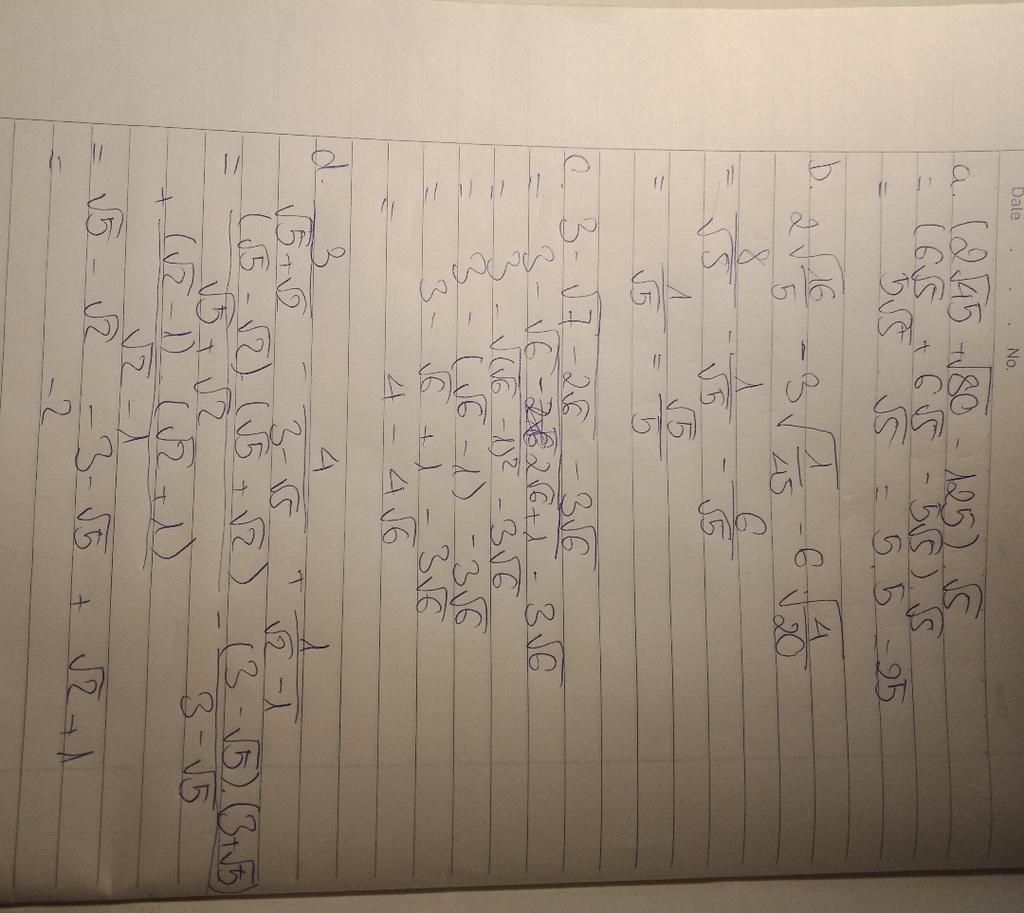 Date . . . No.
a. (2√45 + √80 - 125) √5
= (6√5 + 6√5 - 5√5) . √5
= 5√5 √5 = 5.5 = 25
b. 2√(16/5) - 3√(1/45) - 6√(4/20)
= 8/√5 - 1/√5 - 6/√5
= 1/√5 = √5/5
c. 3 - √(7 - 2√6) - 3√6
= 3 - √(6 - 2√6 + 1) - 3√6
= 3 - √(√6 - 1)² - 3√6
= 3 - (√6 - 1) - 3√6
= 3 - √6 + 1 - 3√6
= 4 - 4√6
d. 3/(√5 + √2) - 4/(3 - √5) + 1/(√2 - 1)
= (√5 - √2) (√5 + √2)/(√5 + √2) - (3 - √5) . (3 + √5)/(3 - √5)
+ (√2 - 1) (√2 + 1)/(√2 - 1)
= √5 - √2 - 3 - √5 + √2 + 1
= -2